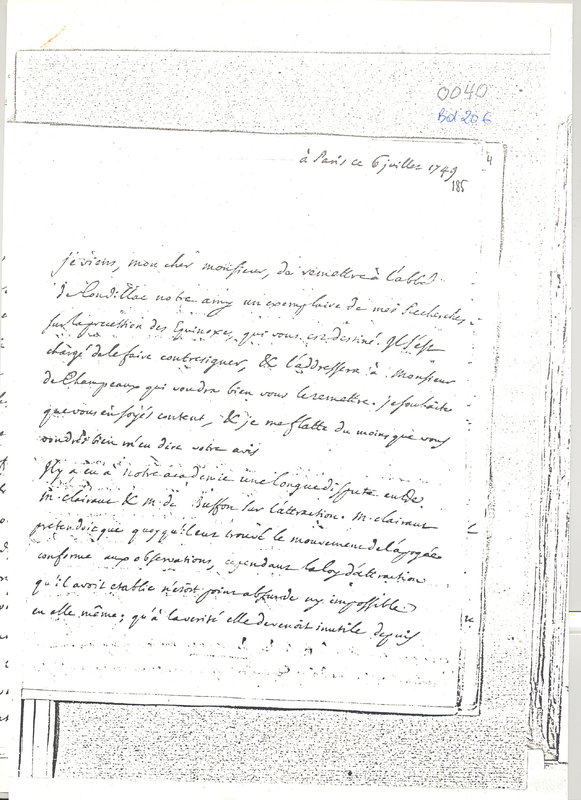 0040
Bd 206
à Paris ce 6 juillet 1749
4
185
je viens, mon cher monsieur, de remettre à l'abbé
de Condillac notre amy un exemplaire de mes Recherches
sur la precession des Equinoxes, qui vous est destiné. Il s'est
chargé de le faire contresigner, & l'addressera à Monsieur
de Champeaux qui voudra bien vous le remettre. je souhaite
que vous en soyés content, & je me flatte du moins que vous
voudrés bien m'en dire votre avis
Il y a eu à notre academie une longue dispute entre
m. clairaut & m. de Buffon sur l'attraction. m. clairaut
pretendoit que quoyqu'il eut trouvé le mouvement de l'apogée
conforme aux observations, cependant la loy d'attraction
qu'il avoit etablie n'etoit point absurde ny impossible
en elle même; qu'à la verité elle devenoit inutile depuis